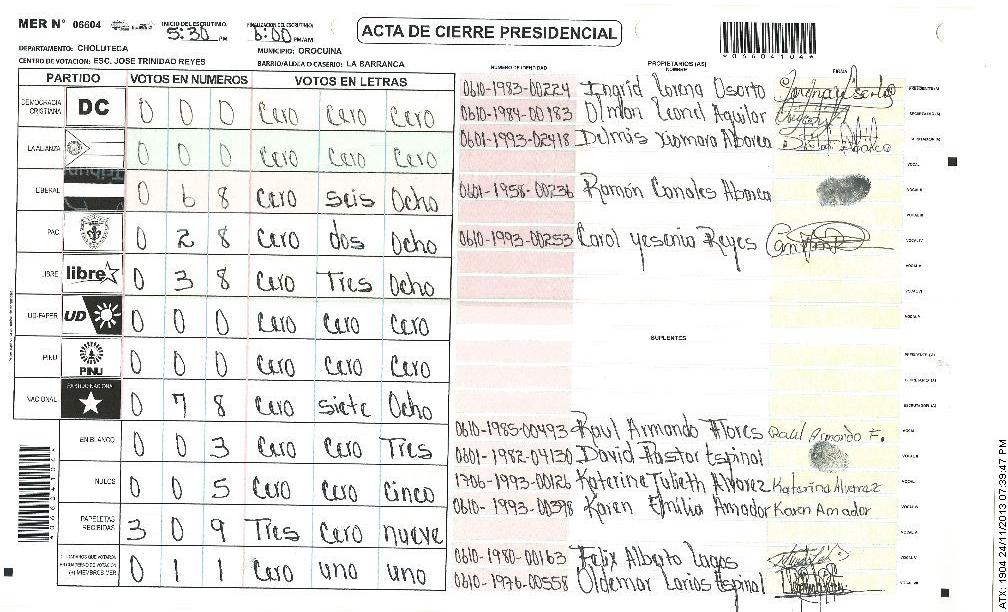 MER N° 06604
INICIO DEL ESCRUTINIO: 5:30 PM
FINALIZACION DEL ESCRUTINIO: 6:00 PM/AM
ACTA DE CIERRE PRESIDENCIAL
*06604104*
DEPARTAMENTO: CHOLUTECA
MUNICIPIO: OROCUINA
CENTRO DE VOTACION: ESC. JOSE TRINIDAD REYES
BARRIO/ALDEA O CASERIO: LA BARRANCA
PARTIDO VOTOS EN NUMEROS VOTOS EN LETRAS
DEMOCRACIA CRISTIANA DC 0 0 0 Cero Cero Cero
LA ALIANZA 0 0 0 Cero Cero Cero
LIBERAL 0 6 8 Cero seis Ocho
PAC 0 2 8 Cero dos Ocho
LIBRE libre 0 3 8 Cero Tres Ocho
UD-FAPER UD 0 0 0 Cero Cero Cero
PINU PINU 0 0 0 Cero Cero Cero
NACIONAL PARTIDO NACIONAL 0 7 8 Cero siete Ocho
EN BLANCO 0 0 3 Cero Cero Tres
NULOS 0 0 5 Cero Cero Cinco
PAPELETAS RECIBIDAS 3 0 9 Tres Cero nueve
(+) MIEMBROS MER 0 1 1 Cero uno uno
NUMERO DE IDENTIDAD PROPIETARIOS (AS) NOMBRE FIRMA
0610-1983-00224 Ingrid Lorena Osorto
0610-1984-00183 Olman Leonel Aguilar
0601-1993-02418 Delmis Xiomara Abarca
0601-1958-00236 Ramón Canales Abarca
0610-1993-00253 Carol yesenia Reyes
SUPLENTES
0610-1985-00493 Raul Armando Flores Raul Armando F.
0601-1982-04130 David Pastor Espinal
1706-1993-00126 Katerine Julieth Alvarez Katerine Alvarez
0610-1993-00398 Karen Emilia Amador Karen Amador
0610-1980-00163 Felix Alberto Lagos
0610-1976-00558 Oldemar Larios Espinal
ATX: 1904 24/11/2013 07:39:47 PM